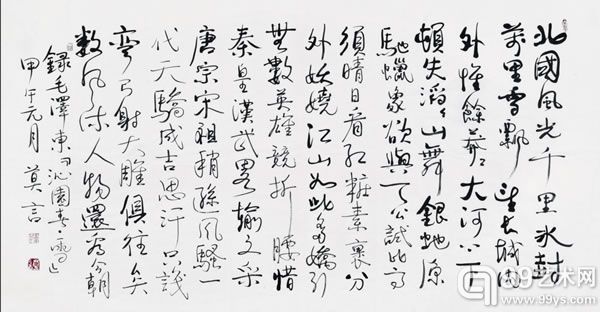 北國風光千里冰封
萬里雪飄望長城内
外惟餘莽々大河上下
頓失滔々山舞銀蛇原
馳蠟象欲與天公試比高
須晴日看紅粧素裹分
外妖嬈江山如此多嬌引
無數英雄競折腰惜
秦皇漢武略輸文采
唐宗宋祖稍遜風騷一
代天驕成吉思汗只識
彎弓射大雕俱往矣
数風流人物還看今朝
錄毛澤東词沁園春·雪
甲午元月 莫言
99艺术网
www.99ys.com